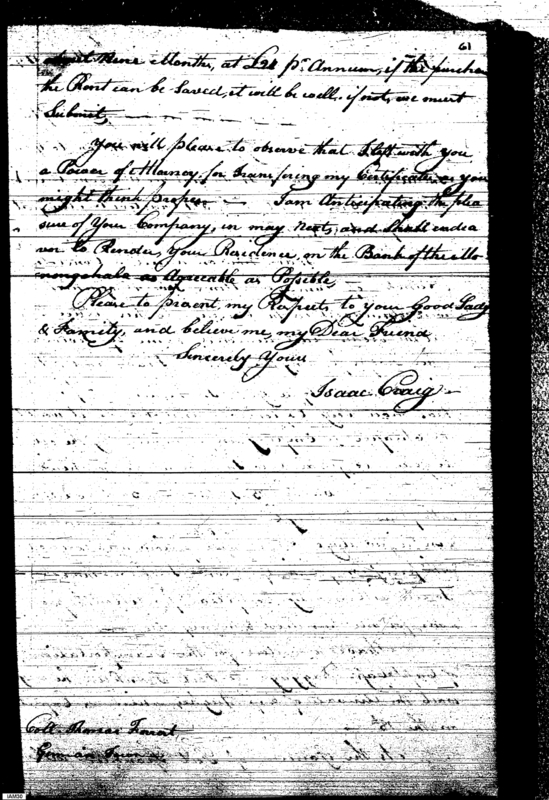 61
about Nine Months, at £24 pr. Annum, if the purchase
the Rent can be Saved, it will be well. if not, we must
Submit,
You will please to observe that I left with you
a Power of Attorney, for transfering my Certificates as you
might think proper — I am Anticipating the plea
sure of Your Company, in may Next, and Shall endea
vor to Render, your Residence, on the Bank of the Mo-
nongohala as Agreeable as Possible
Please to present my Respects to your Good Lady
& Family, and believe me, my Dear Friend
Sincerely Yours
Isaac Craig
Coll. Thomas Forrest
German Town
IAM30